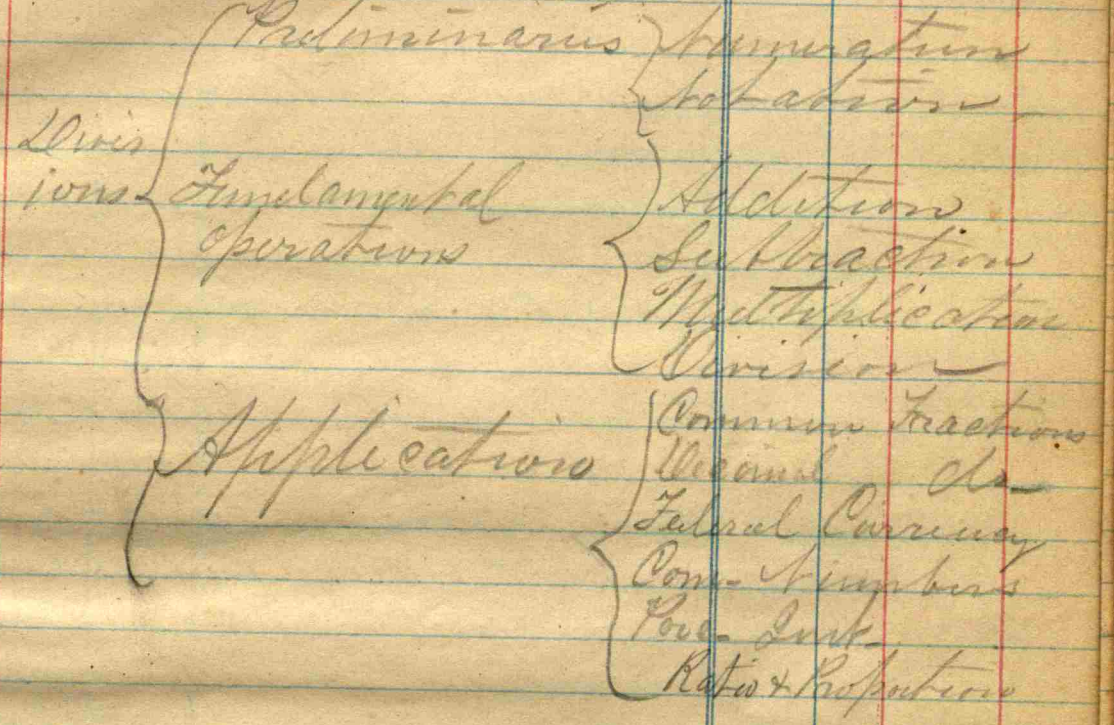 Divis
ions
Preliminaries
Numeration
Notation
Fundamental
operations
Addition
Subtraction
Multiplication
Division
Application
Common Fractions
Decimal do
Federal Currency
Com- Numbers
Ratio & Proportion